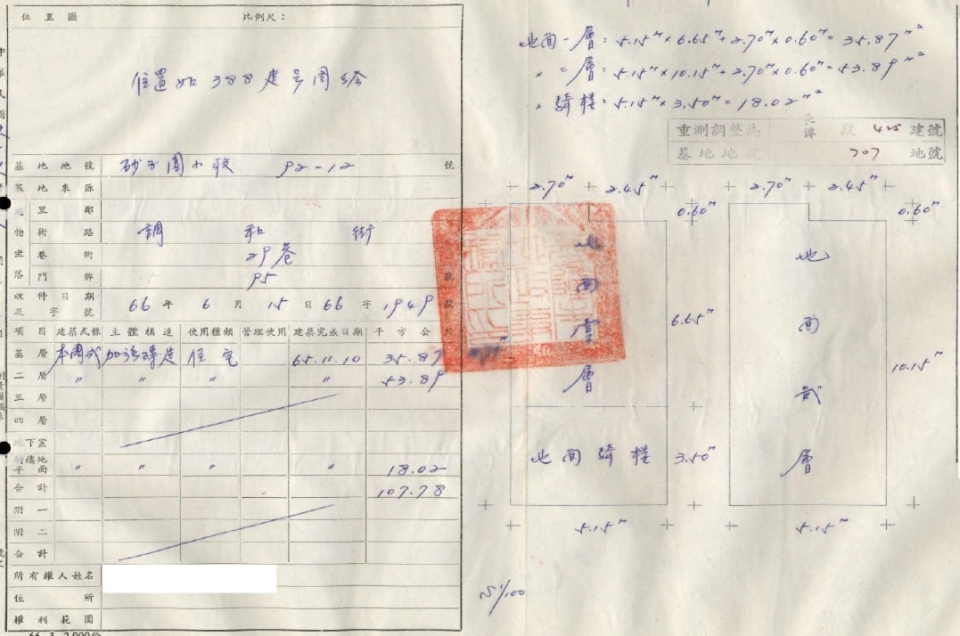 位置圖 比例尺：
位置如388建号圖繪
基地地號 砂子園小段 92-12 號
基地來源
里鄰
街路 調和街
巷衖 29巷
門牌 95 號
收件日期 66年6月15日66字1949號
項目 建築式樣 主體構造 使用種類 管理使用 建築完成日期 平方公尺
基層 本國式 加強磚造 住宅 65.11.10 35.87
二層 〃 〃 〃 53.89
三層
四層
地下室
平面 〃 〃 〃 〃 18.02
合計 107.78
附一
附二
合計
所有權人姓名
住所
權利範圍
66. 3. 2,000份
地面一層=5.15ᵐ×6.65+2.70ᵐ×0.60ᵐ=35.87ᵐ²
〃二層=5.15ᵐ×10.15+2.70ᵐ×0.60=53.89ᵐ²
〃騎樓=5.15ᵐ×3.50ᵐ=18.02ᵐ²
重測調整為 長潭段 425建號
基地地號 707 地號
2.70ᵐ 2.45ᵐ
0.60ᵐ
地面壹層
6.65ᵐ
地面騎樓 3.50ᵐ
5.15ᵐ
2.70ᵐ 2.45ᵐ
0.60ᵐ
地面貳層
10.15ᵐ
5.15ᵐ